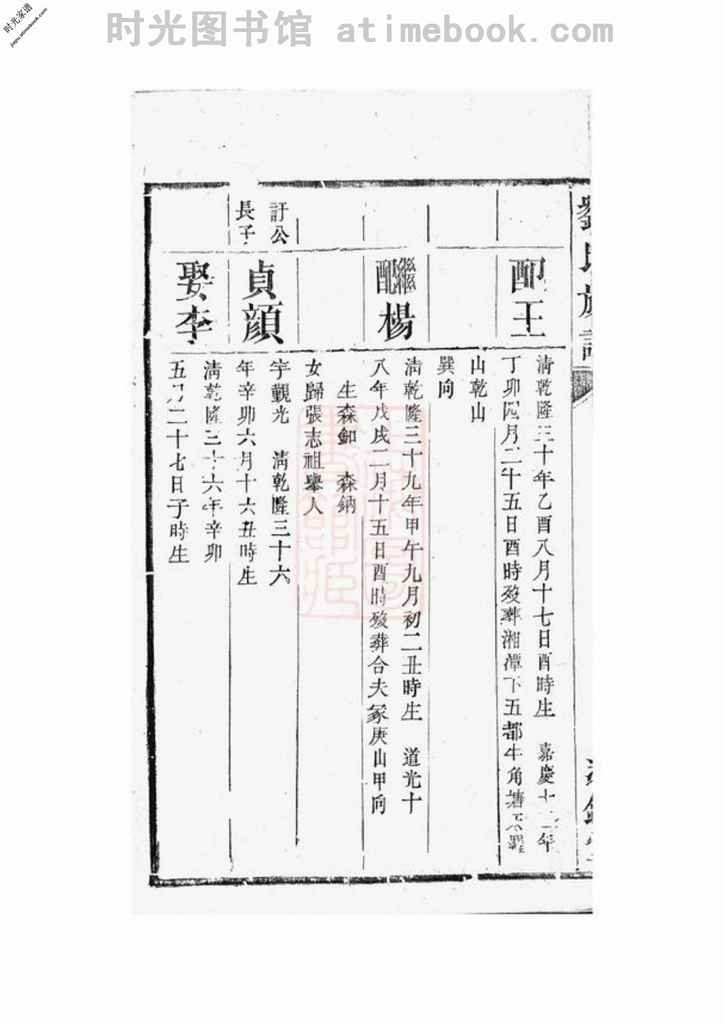 时光图书馆 atimebook.com
时光家谱
jiapu.atimebook.com
劉氏族
配王
清乾隆三十年乙酉八月十七日酉時生 嘉慶十二年
丁卯四月二十五日酉時歿葬湘潭下五都牛角塘
山乾山
巽向
繼配楊
清乾隆三十九年甲午九月初二丑時生 道光十
八年戊戌二月十五日酉時歿葬合夫冢庚山甲向
生森鉚 森鈉
女歸張志祖舉人
訏公
長子
貞顔
字觀光 清乾隆三十六
年辛卯六月十六丑時生
娶李
清乾隆三十六年辛卯
五月二十七日子時生